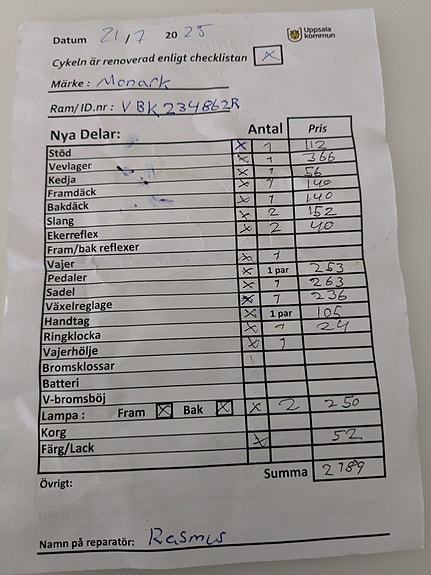 Datum 21/7 2025 Uppsala kommun
Cykeln är renoverad enligt checklistan x
Märke : Monark
Ram/ID.nr : VBK234862R
Nya Delar: Antal Pris
Stöd x 1 112
Vevlager x 1 366
Kedja x 1 56
Framdäck x 1 140
Bakdäck x 1 140
Slang x 2 152
Ekerreflex x 2 40
Fram/bak reflexer
Vajer x 1
Pedaler x 1 par 253
Sadel x 1 263
Växelreglage x 1 236
Handtag x 1 par 105
Ringklocka x 1 24
Vajerhölje x 1
Bromsklossar
Batteri
V-bromsböj
Lampa : Fram x Bak x x 2 250
Korg
Färg/Lack x 52
Summa 2189
Övrigt:
Namn på reparatör: Rasmus